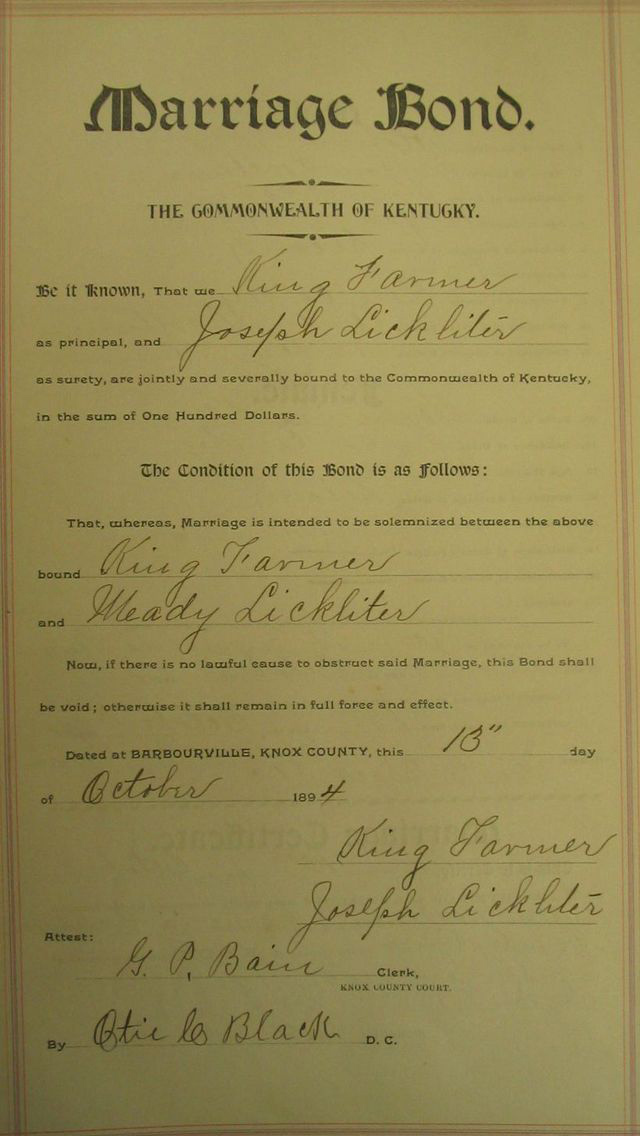 Marriage Bond.
THE COMMONWEALTH OF KENTUCKY.
Be it Known, That we King Farmer
as principal, and Joseph Lickliter
as surety, are jointly and severally bound to the Commonwealth of Kentucky,
in the sum of One Hundred Dollars.
The Condition of this Bond is as Follows:
That, whereas, Marriage is intended to be solemnized between the above
bound King Farmer
and Meady Lickliter
Now, if there is no lawful cause to obstruct said Marriage, this Bond shall
be void; otherwise it shall remain in full force and effect.
Dated at BARBOURVILLE, KNOX COUNTY, this 13" day
of October 1894
King Farmer
Joseph Lickliter
Attest:
G. P. Bain Clerk,
KNOX COUNTY COURT.
By Otie C Black D. C.